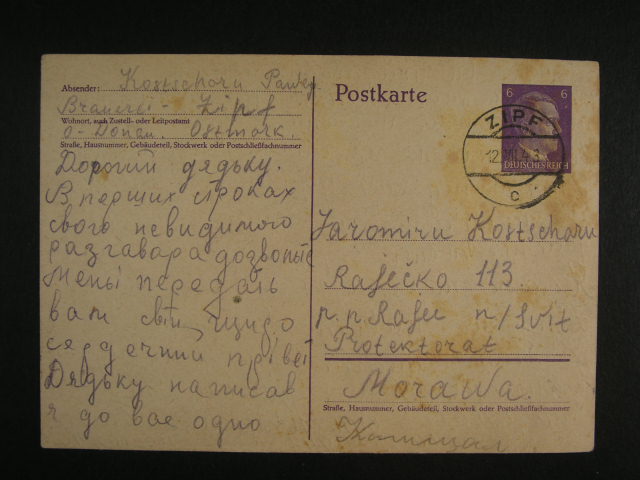 Absender: Kostscharu Pawey
Brauerei - Zipf
Wohnort, auch Zustell- oder Leitpostamt
O-Donau. Ostmark
Straße, Hausnummer, Gebäudeteil, Stockwerk oder Postschließfachnummer
Дорогий дядьку.
В перших строках
свого невидимого
разгавара дозвольте
Мені передать
вам свій щиро
сердечний прівет
Дядьку написав
я до вас одно
Postkarte
6 6
DEUTSCHES REICH
ZIPF
c
Jaromiru Kostscharu
Raječko 113.
p.p Rajec n/Svit
Protektorat
Morawa.
Straße, Hausnummer, Gebäudeteil, Stockwerk oder Postschließfachnummer